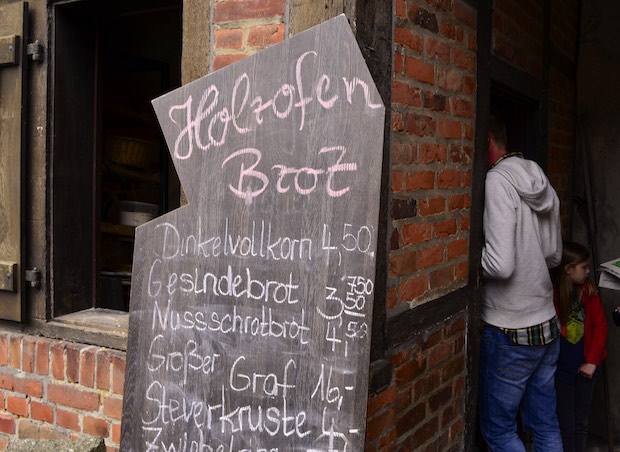 Holzofen
Brot
Dinkelvollkorn 4,50.
Gesindebrot 3,50 750
Nussschrotbrot 4,50
Großer Graf 16,-
Steverkruste 4,-